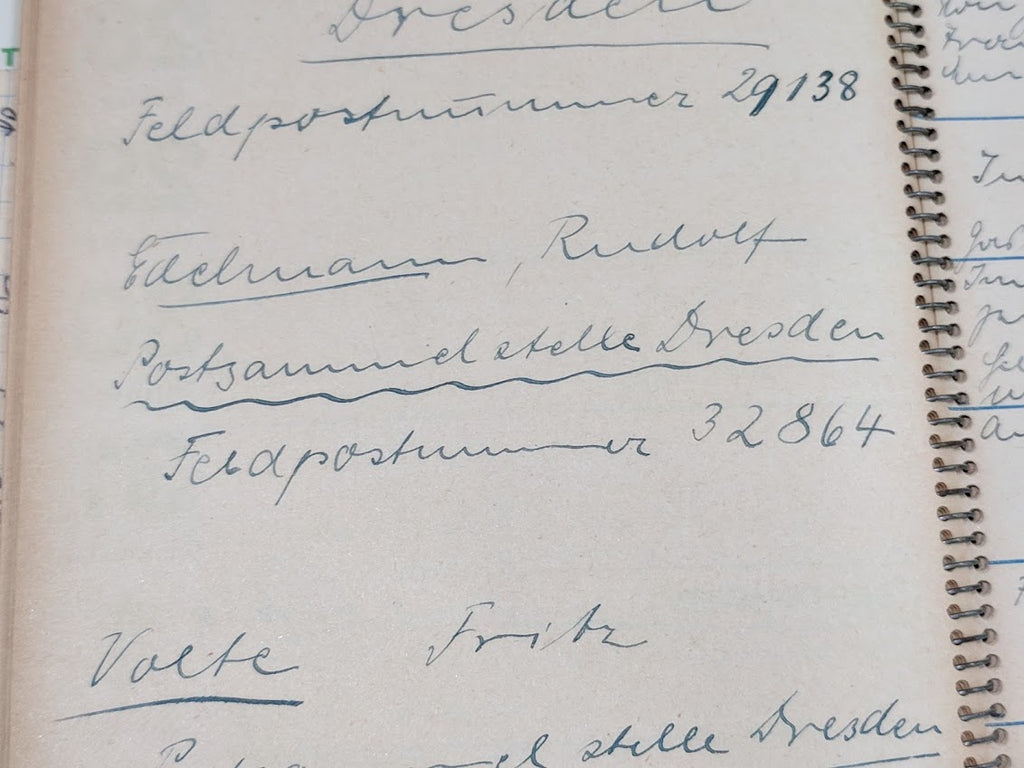 Dresden
Feldpostnummer 29138
Edelmann, Rudolf
Postsammelstelle Dresden
Feldpostnummer 32864
Fritz
stelle Dresden